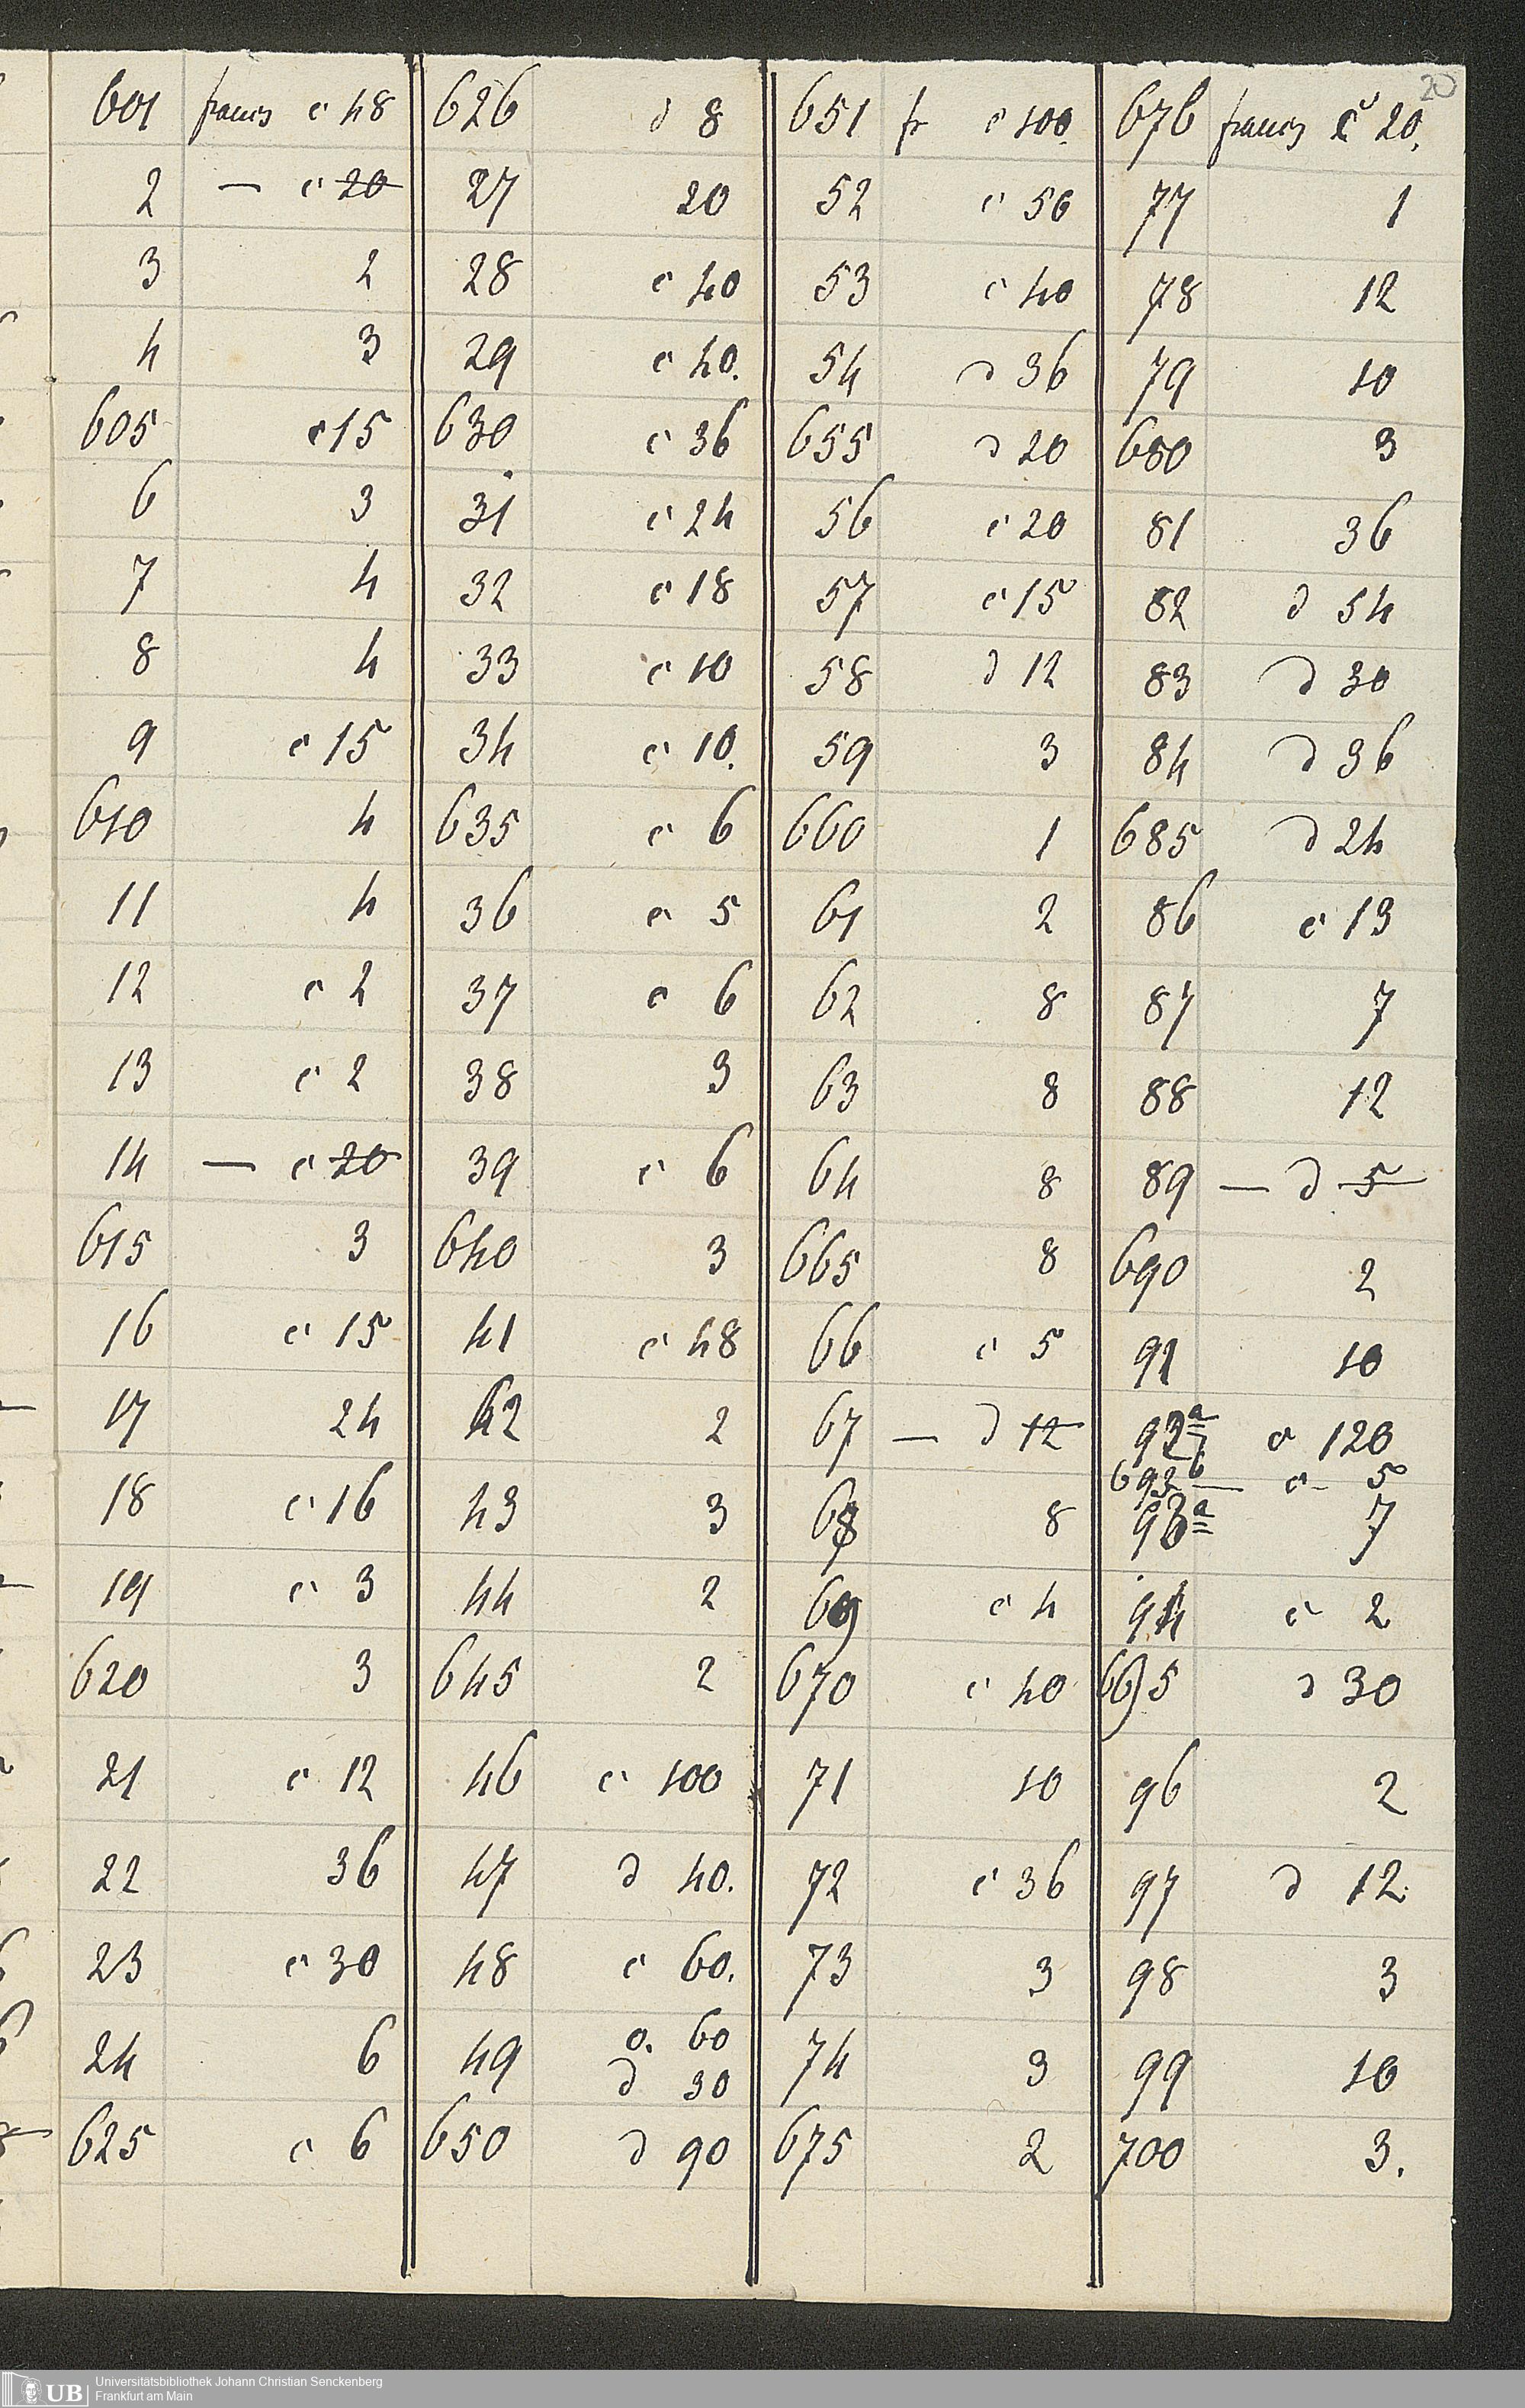 20
601 francs c 48 626 d 8 651 fr c 100. 676 francs c 20.
2 — c 20 27 20 52 c 56 77 1
3 2 28 c 40 53 c 40 78 12
4 3 29 c 40. 54 d 36 79 10
605 c 15 630 c 36 655 d 20 680 3
6 3 31 c 24 56 c 20 81 36
7 4 32 c 18 57 c 15 82 d 54
8 4 33 c 10 58 d 12 83 d 30
9 c 15 34 c 10. 59 3 84 d 36
610 4 635 c 6 660 1 685 d 24
11 4 36 c 5 61 2 86 c 13
12 c 2 37 c 6 62 8 87 7
13 c 2 38 3 63 8 88 12
14 — c 20 39 c 6 64 8 89 — d 5
615 3 640 3 665 8 690 2
16 c 15 41 c 48 66 c 5 91 10
17 24 42 2 67 — d 12 92a c 120
692b — c 5
18 c 16 43 3 68 8 93a 7
19 c 3 44 2 69 c 4 94 c 2
620 3 645 2 670 c 40 695 d 30
21 c 12 46 c 100 71 10 96 2
22 36 47 d 40. 72 c 36 97 d 12.
23 c 30 48 c 60. 73 3 98 3
24 6 49 o. 60 74 3 99 10
d 30
625 c 6 650 d 90 675 2 700 3.
UB
Universitätsbibliothek Johann Christian Senckenberg
Frankfurt am Main